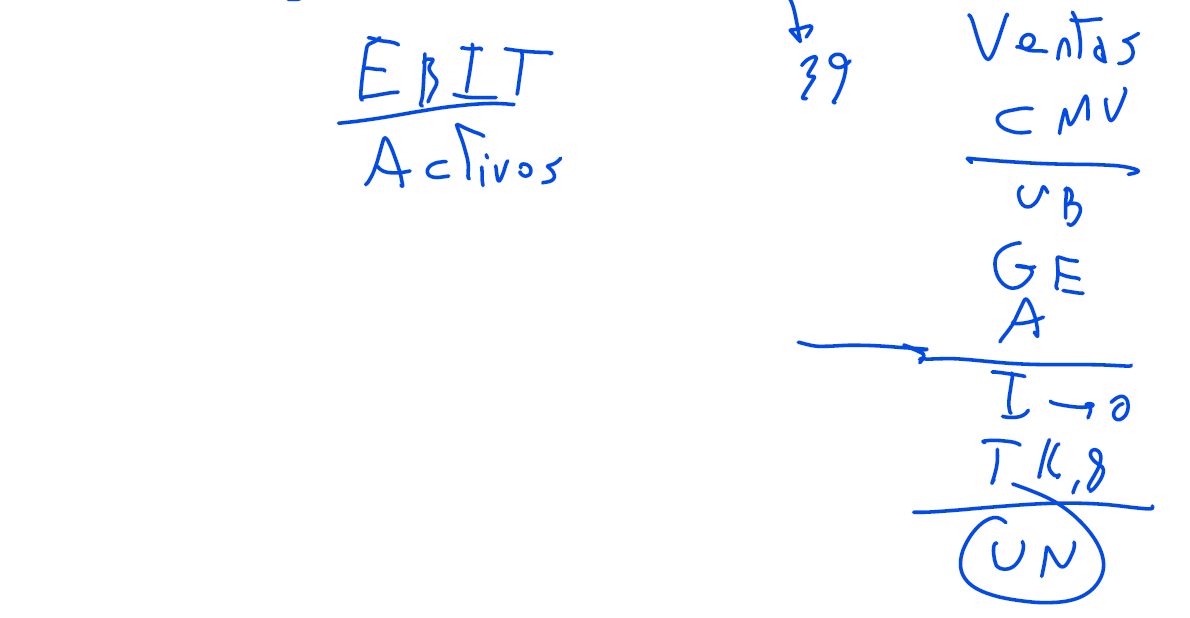 EBIT
Activos
39
Ventas
CMV
UB
GE
A
I → 0
T
UN